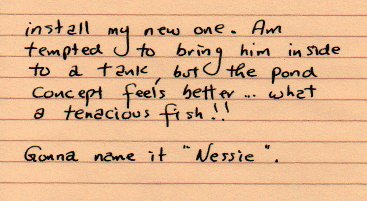 install my new one. Am
tempted to bring him inside
to a tank, but the pond
concept feels better... what
a tenacious fish!!
Gonna name it "Nessie".